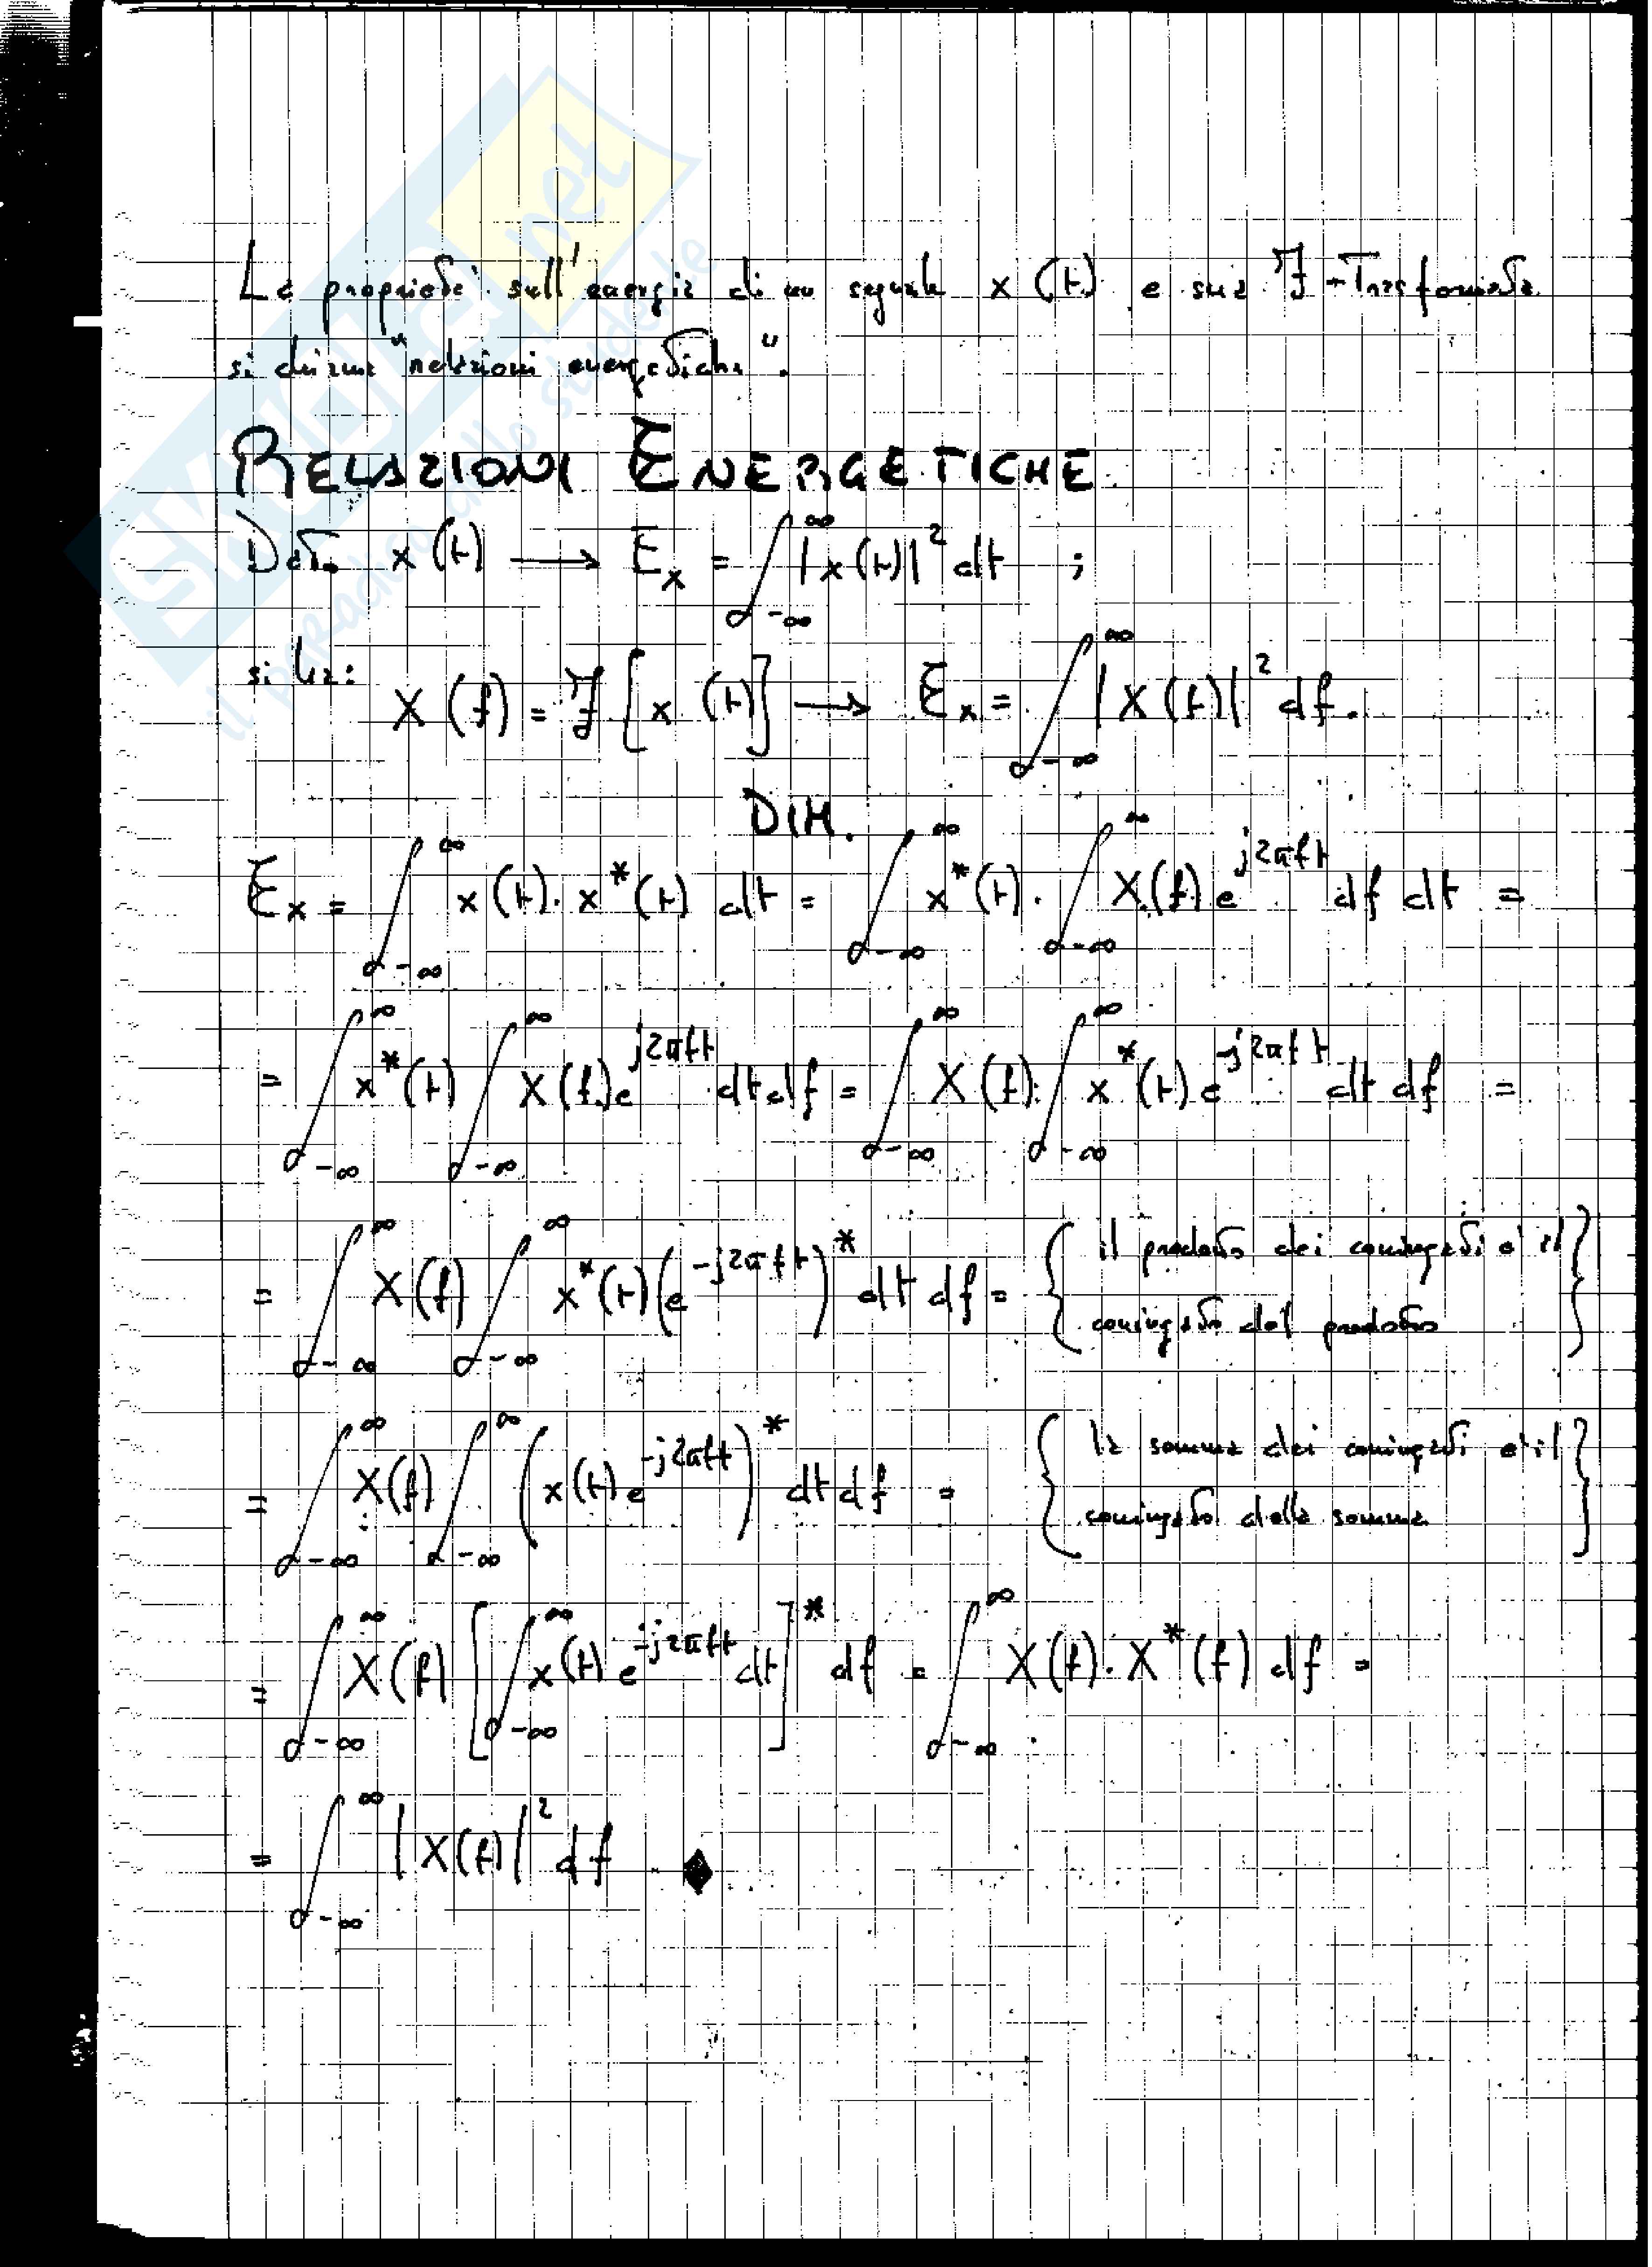 La proprietà sull'energia di un segnale x(t) e sua F-Trasformata
si chiama "relazioni energetiche".
RELAZIONI ENERGETICHE
Dato x(t) → E_x = ∫_{-∞}^{∞} |x(t)|² dt ;
si ha:
X(f) = F[x(t)] → E_x = ∫_{-∞}^{∞} |X(f)|² df.
DIM.
E_x = ∫_{-∞}^{∞} x(t)·x*(t) dt = ∫_{-∞}^{∞} x*(t)· ∫_{-∞}^{∞} X(f) e^{j2πft} df dt =
= ∫_{-∞}^{∞} x*(t) ∫_{-∞}^{∞} X(f) e^{j2πft} dt df = ∫_{-∞}^{∞} X(f)· ∫_{-∞}^{∞} x*(t) e^{-j2πft} dt df =
= ∫_{-∞}^{∞} X(f) ∫_{-∞}^{∞} x*(t) (e^{-j2πft})* dt df = { il prodotto dei coniugati e' il
coniugato del prodotto }
= ∫_{-∞}^{∞} X(f) ∫_{-∞}^{∞} (x(t) e^{-j2πft})* dt df = { la somma dei coniugati e' il
coniugato della somma }
= ∫_{-∞}^{∞} X(f) [∫_{-∞}^{∞} x(t) e^{-j2πft} dt]* df = ∫_{-∞}^{∞} X(f)·X*(f) df =
= ∫_{-∞}^{∞} |X(f)|² df ◆
SKUOLA.net
il paradiso dello studente